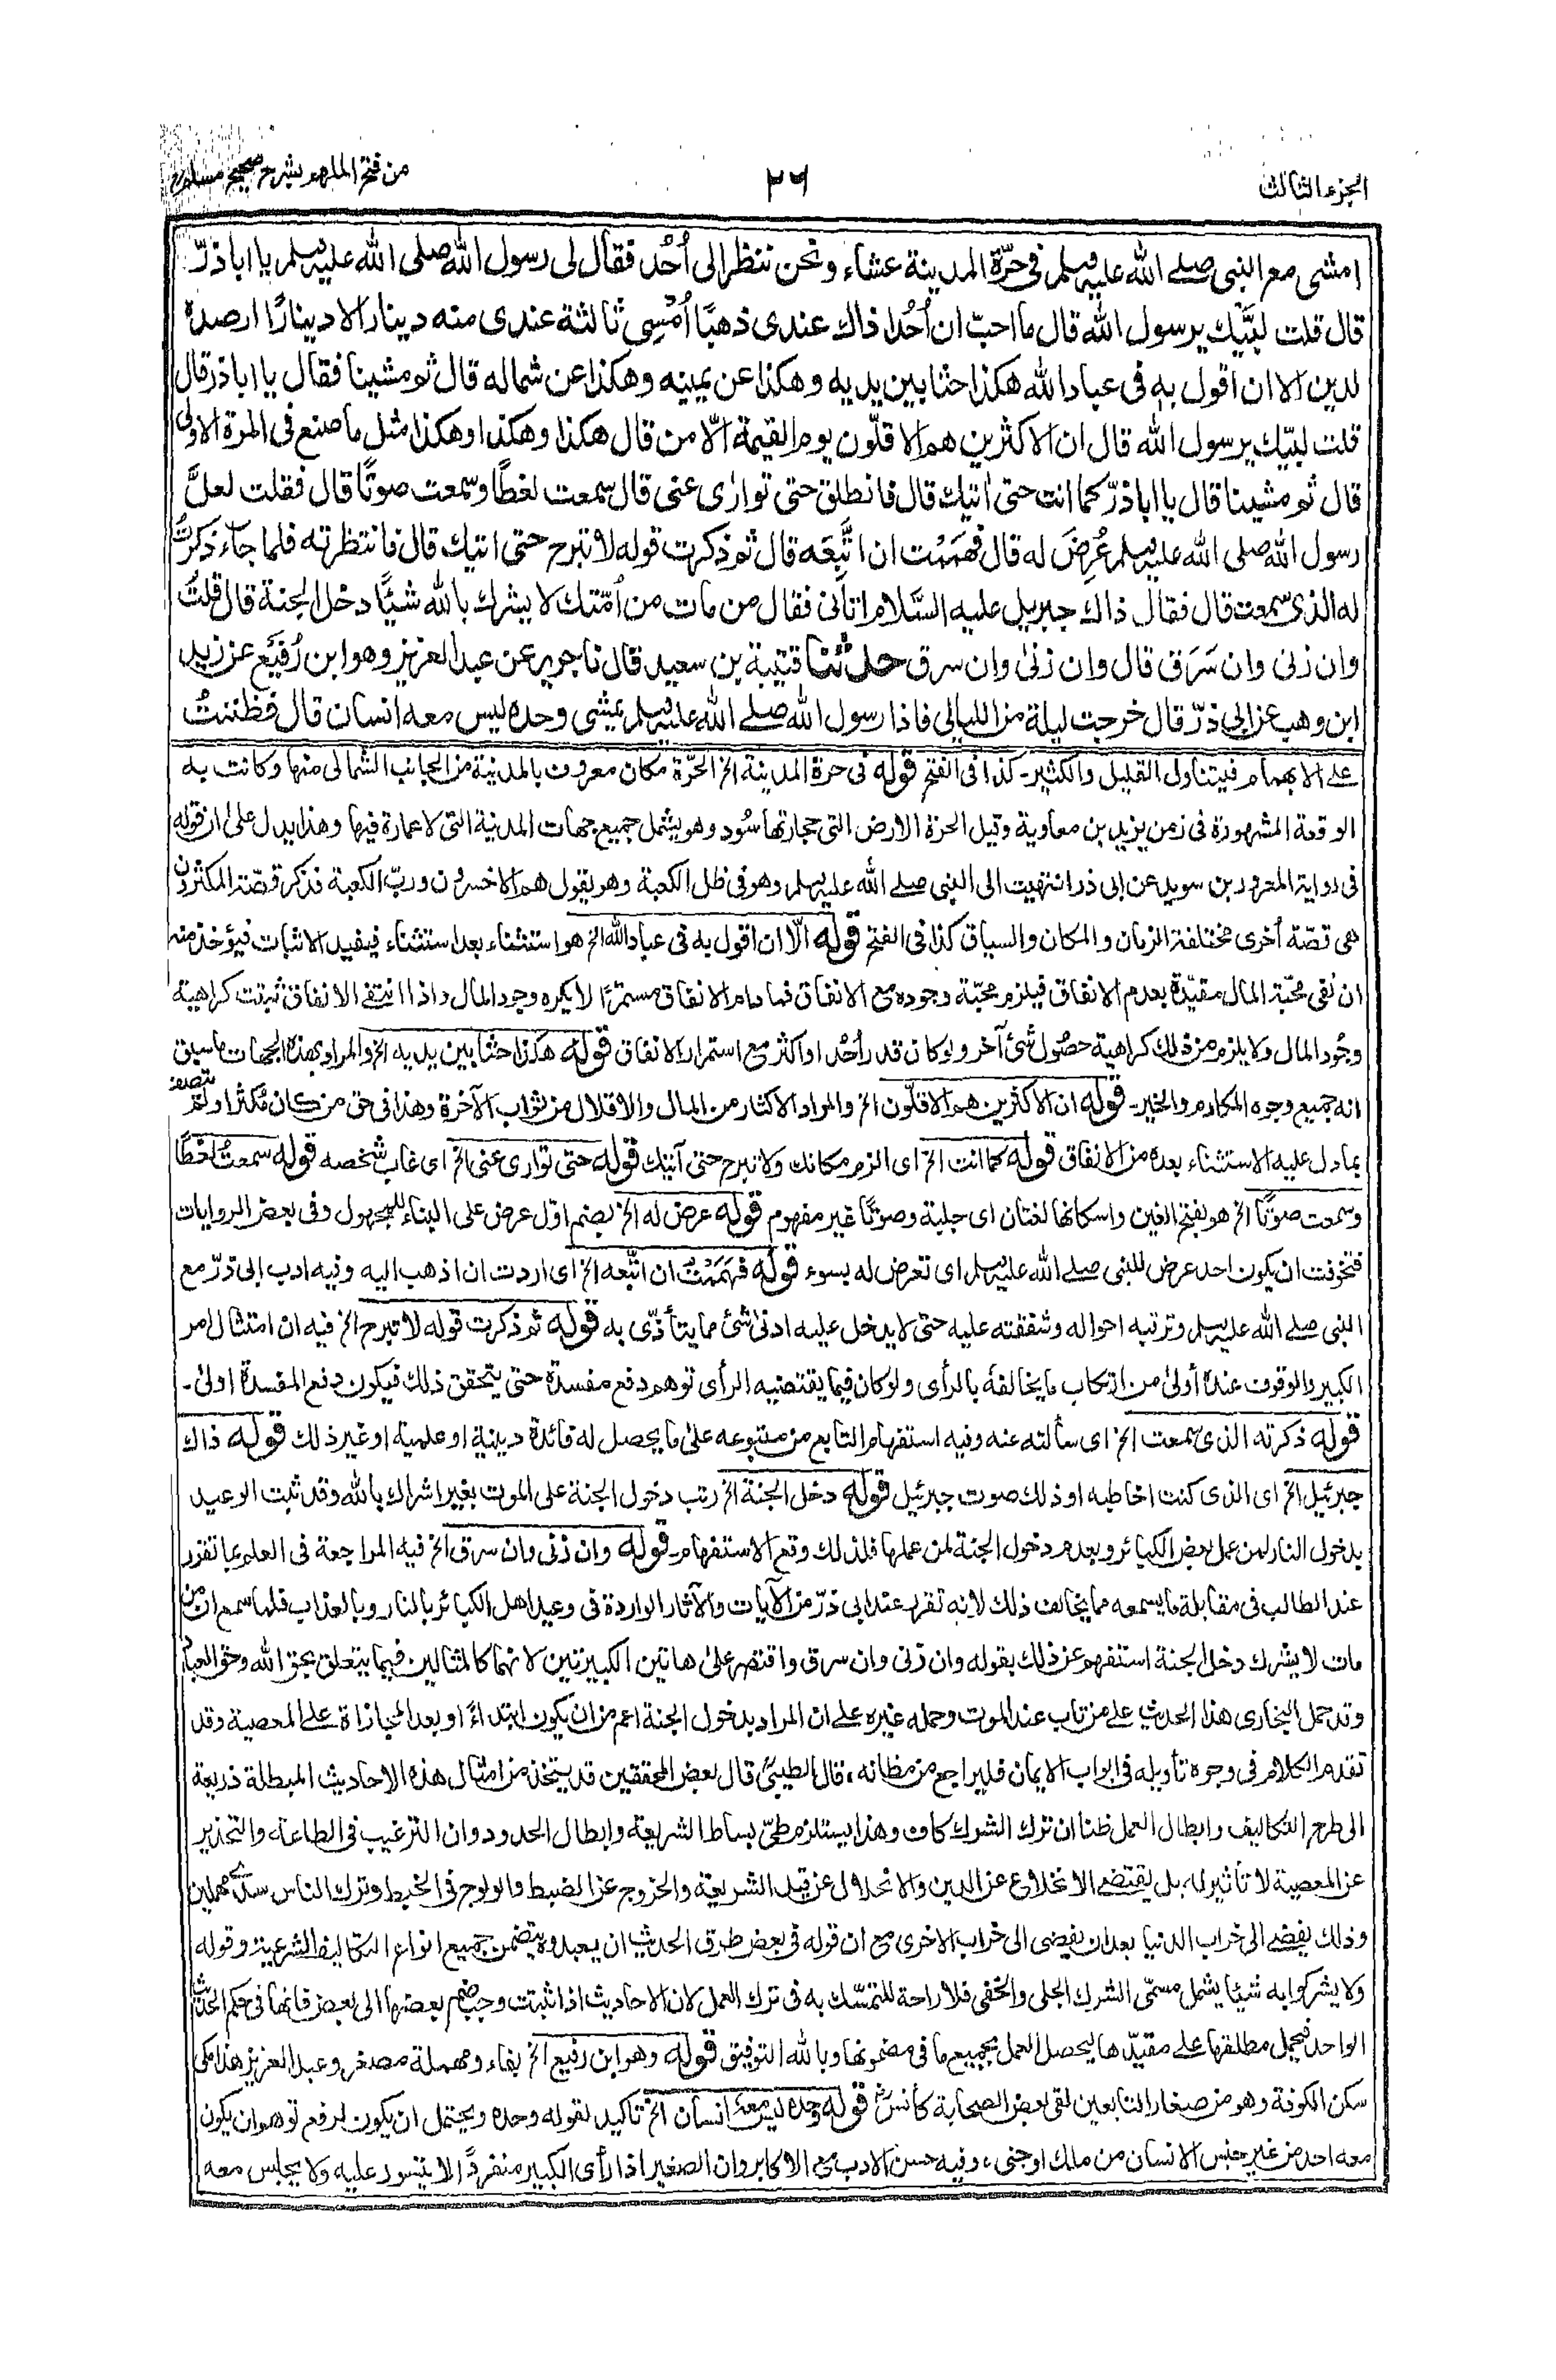 الجزء الثالث
٢٦
من فتح الملهم بشرح صحيح مسلم
امشى مع النبى صلے الله عليه وسلم فى حرّة المدينة عشاء ونحن ننظر الى أُحُد فقال لى رسول الله صلى الله عليه وسلم يا اباذرّ
قال قلت لبّيك يرسول الله قال ما احبّ ان اُحُدا ذاك عندى ذهبًا اُمْسِى ثالثة عندى منه دينار الا دينارًا ارصده
لدين الا ان اقول به فى عباد الله هكذا حثا بين يديه وهكذا عن يمينه وهكذا عن شماله قال ثم مشينا فقال يا اباذر قال
قلت لبيّك يرسول الله قال ان الاكثرين هم الاقلّون يوم القيمة الّا من قال هكذا وهكذا وهكذا مثل ما صنع فى المرة الاولى
قال ثم مشينا قال يا اباذرّ كما انت حتى اٰتيك قال فانطلق حتى توارٰى عنى قال سمعت لغطًا وسمعت صوتًا قال فقلت لعلَّ
رسول الله صلى الله عليه وسلم عُرِضَ له قال فهَمَمْت ان اتَّبِعَه قال ثم ذكرت قوله لا تبرح حتى اٰتيك قال فانتظرته فلما جآء ذكرتُ
له الذى سمعت قال فقال ذاك جبريل عليه السَّلام اتانى فقال من مات من اُمّتك لا يشرك بالله شيئًا دخل الجنة قال قلتُ
وان زنى وان سَرَق قال وان زنىٰ وان سرق حدثنا قتيبة بن سعيد قال نا جرير عن عبد العزيز وهو ابن رُفَيَع عن زيد
ابن وهب عن ابى ذرّ قال خرجت ليلة من الليالى فاذا رسول الله صلے الله عليه وسلم يمشى وحده ليس معه انسان قال فظننتُ
على الابهام فيتناول القليل والكثير۔ كذا فى الفتح قوله فى حرة المدينة الخ الحرّة مكان معروف بالمدينة من الجانب الشمالى منها وكانت به
الوقعة المشهورة فى زمن يزيد بن معاوية وقيل الحرة الارض التى حجارتها سُود وهو يشمل جميع جهات المدينة التى لا عمارة فيها وهذا يدل علىٰ ان قوله
فى رواية المعرور بن سويد عن ابى ذر انتهيت الى النبى صلے الله عليه وسلم وهو فى ظل الكعبة وهو يقول هم الاخسرون وربّ الكعبة فذكر قصّة المكثرون
هى قصّة اُخرى مختلفة الزمان والمكان والسياق كذا فى الفتح قوله الّا ان اقول به فى عباد الله الخ هو استثناء بعد استثناء فيفيد الاثبات فيؤخذ منه
ان نفى محبّة المال مقيّدة بعدم الانفاق فيلزم محبّة وجوده مع الانفاق فما دام الانفاق مستمرًا لا يكره وجود المال واذا انتفى الانفاق ثبتت كراهية
وجُود المال ولا يلزم من ذلك كراهية حصُول شئ آخر ولو كان قدر اُحُد او اكثر مع استمرار الانفاق قوله هكذا حثا بين يديه الخ والمراد بهذه الجهات ما سبق
انه جميع وجوه المكارم والخير۔ قوله ان الاكثرين هم الاقلّون الخ والمراد الاكثار من المال والاقلال من ثواب الآخرة وهذا فى حق من كان مُكثرًا ولم يتصف
بما دل عليه الاستثناء بعده من الانفاق قوله كما انت الخ اى الزم مكانك ولا تبرح حتى آتيك قوله حتى توارى عنى الخ اى غاب شخصه قوله سمعتُ لغطًا
وسمعت صوتًا الخ هو بفتح الغين واسكانها لغتان اى جلبة وصوتًا غير مفهوم قوله عرض له الخ بضم اوّل عرض على البناء للمجهول وفى بعض الروايات
فتخوفت ان يكون احد عرض للنبى صلے الله عليه وسلم اى تعرض له بسوء قوله فهَمَمْتُ ان اتّبعه الخ اى اردت ان اذهب اليه وفيه ادب ابى ذرّ مع
النبى صلے الله عليه وسلم وترتبه احواله وشفقته عليه حتى لا يدخل عليه ادنىٰ شئ مما يتأذّى به قوله ثم ذكرت قوله لا تبرح الخ فيه ان امتثال امر
الكبير والوقوف عنده أولىٰ من ارتكاب ما يخالفه بالرأى ولو كان فيما يقتضيه الرأى توهم دفع مفسدة حتى يتحقق ذلك فيكون دفع المفسدة اولىٰ۔
قوله ذكرته الذى سمعت الخ اى سألته عنه وفيه استفهام التابع من متبوعه على ما يحصل له فائدة دينية او علمية او غير ذلك قوله ذاك
جبرئيل الخ اى الذى كنت اخاطبه او ذلك صوت جبرئيل قوله دخل الجنة الخ رتب دخول الجنة على الموت بغير اشراك بالله وقد ثبت الوعيد
بدخول النار لمن عمل بعض الكبائر وبعدم دخول الجنة لمن عملها فلذلك وقع الاستفهام۔ قوله وان زنى وان سرق الخ فيه المراجعة فى العلم بما تقرر
عند الطالب فى مقابلة ما يسمعه مما يخالف ذلك لانه تقرر عند ابى ذرّ من الآيات والآثار الواردة فى وعيد اهل الكبائر بالنار وبالعذاب فلما سمع ان من
مات لا يشرك دخل الجنة استفهم عن ذلك بقوله وان زنى وان سرق واقتصر علىٰ هاتين الكبيرتين لانهما كالمثالين فيما يتعلق بحق الله وحق العباد
وقد حمل البخارى هذا الحديث على من تاب عند الموت وحمله غيره على ان المراد بدخول الجنة اعم من ان يكون ابتداءً او بعد المجازاة على المعصية وقد
تقدم الكلام فى وجوه تأويله فى ابواب الايمان فليراجع من مظانه، قال الطيبىؒ قال بعض المحققين قد يتخذ من امثال هذه الاحاديث المبطلة ذريعة
الى طرح التكاليف وابطال العمل ظنا ان ترك الشرك كاف وهذا يستلزم طىّ بساط الشريعة وابطال الحدود وان الترغيب فى الطاعة والتحذير
عن المعصية لا تأثير له، بل يقتضى الانخلاع عن الدين والانحلال عن قيد الشريعة والخروج عن الضبط والولوج فى الخبط وترك الناس سدًى مهملين
وذلك يفضى الى خراب الدنيا بعد ان يفضى الى خراب الاخرى مع ان قوله فى بعض طرق الحديث ان يعبدوه يتضمن جميع انواع التكاليف الشرعية وقوله
ولا يشركوا به شيئا يشمل مسمّى الشرك الجلى والخفى فلا راحة للتمسّك به فى ترك العمل لان الاحاديث اذا ثبتت وجب ضم بعضها الى بعض فانها فى حكم الحديث
الواحد فيحمل مطلقها على مقيدّها ليحصل العمل بجميع ما فى مضمونها وبالله التوفيق قوله وهو ابن رفيع الخ بفاء ومهملة مصغر وعبد العزيز هذا مكى
سكن الكوفة وهو من صغار التابعين لقى بعض الصحابة كأنسؓ قوله وحده ليس معهٗ انسان الخ تاكيد لقوله وحده ويحتمل ان يكون لرفع توهم ان يكون
معه احد من غير جنس الانسان من ملك او جنى، وفيه حسن الادب مع الاكابر وان الصغير اذا رأى الكبير منفردًا لا يتسور عليه ولا يجلس معه